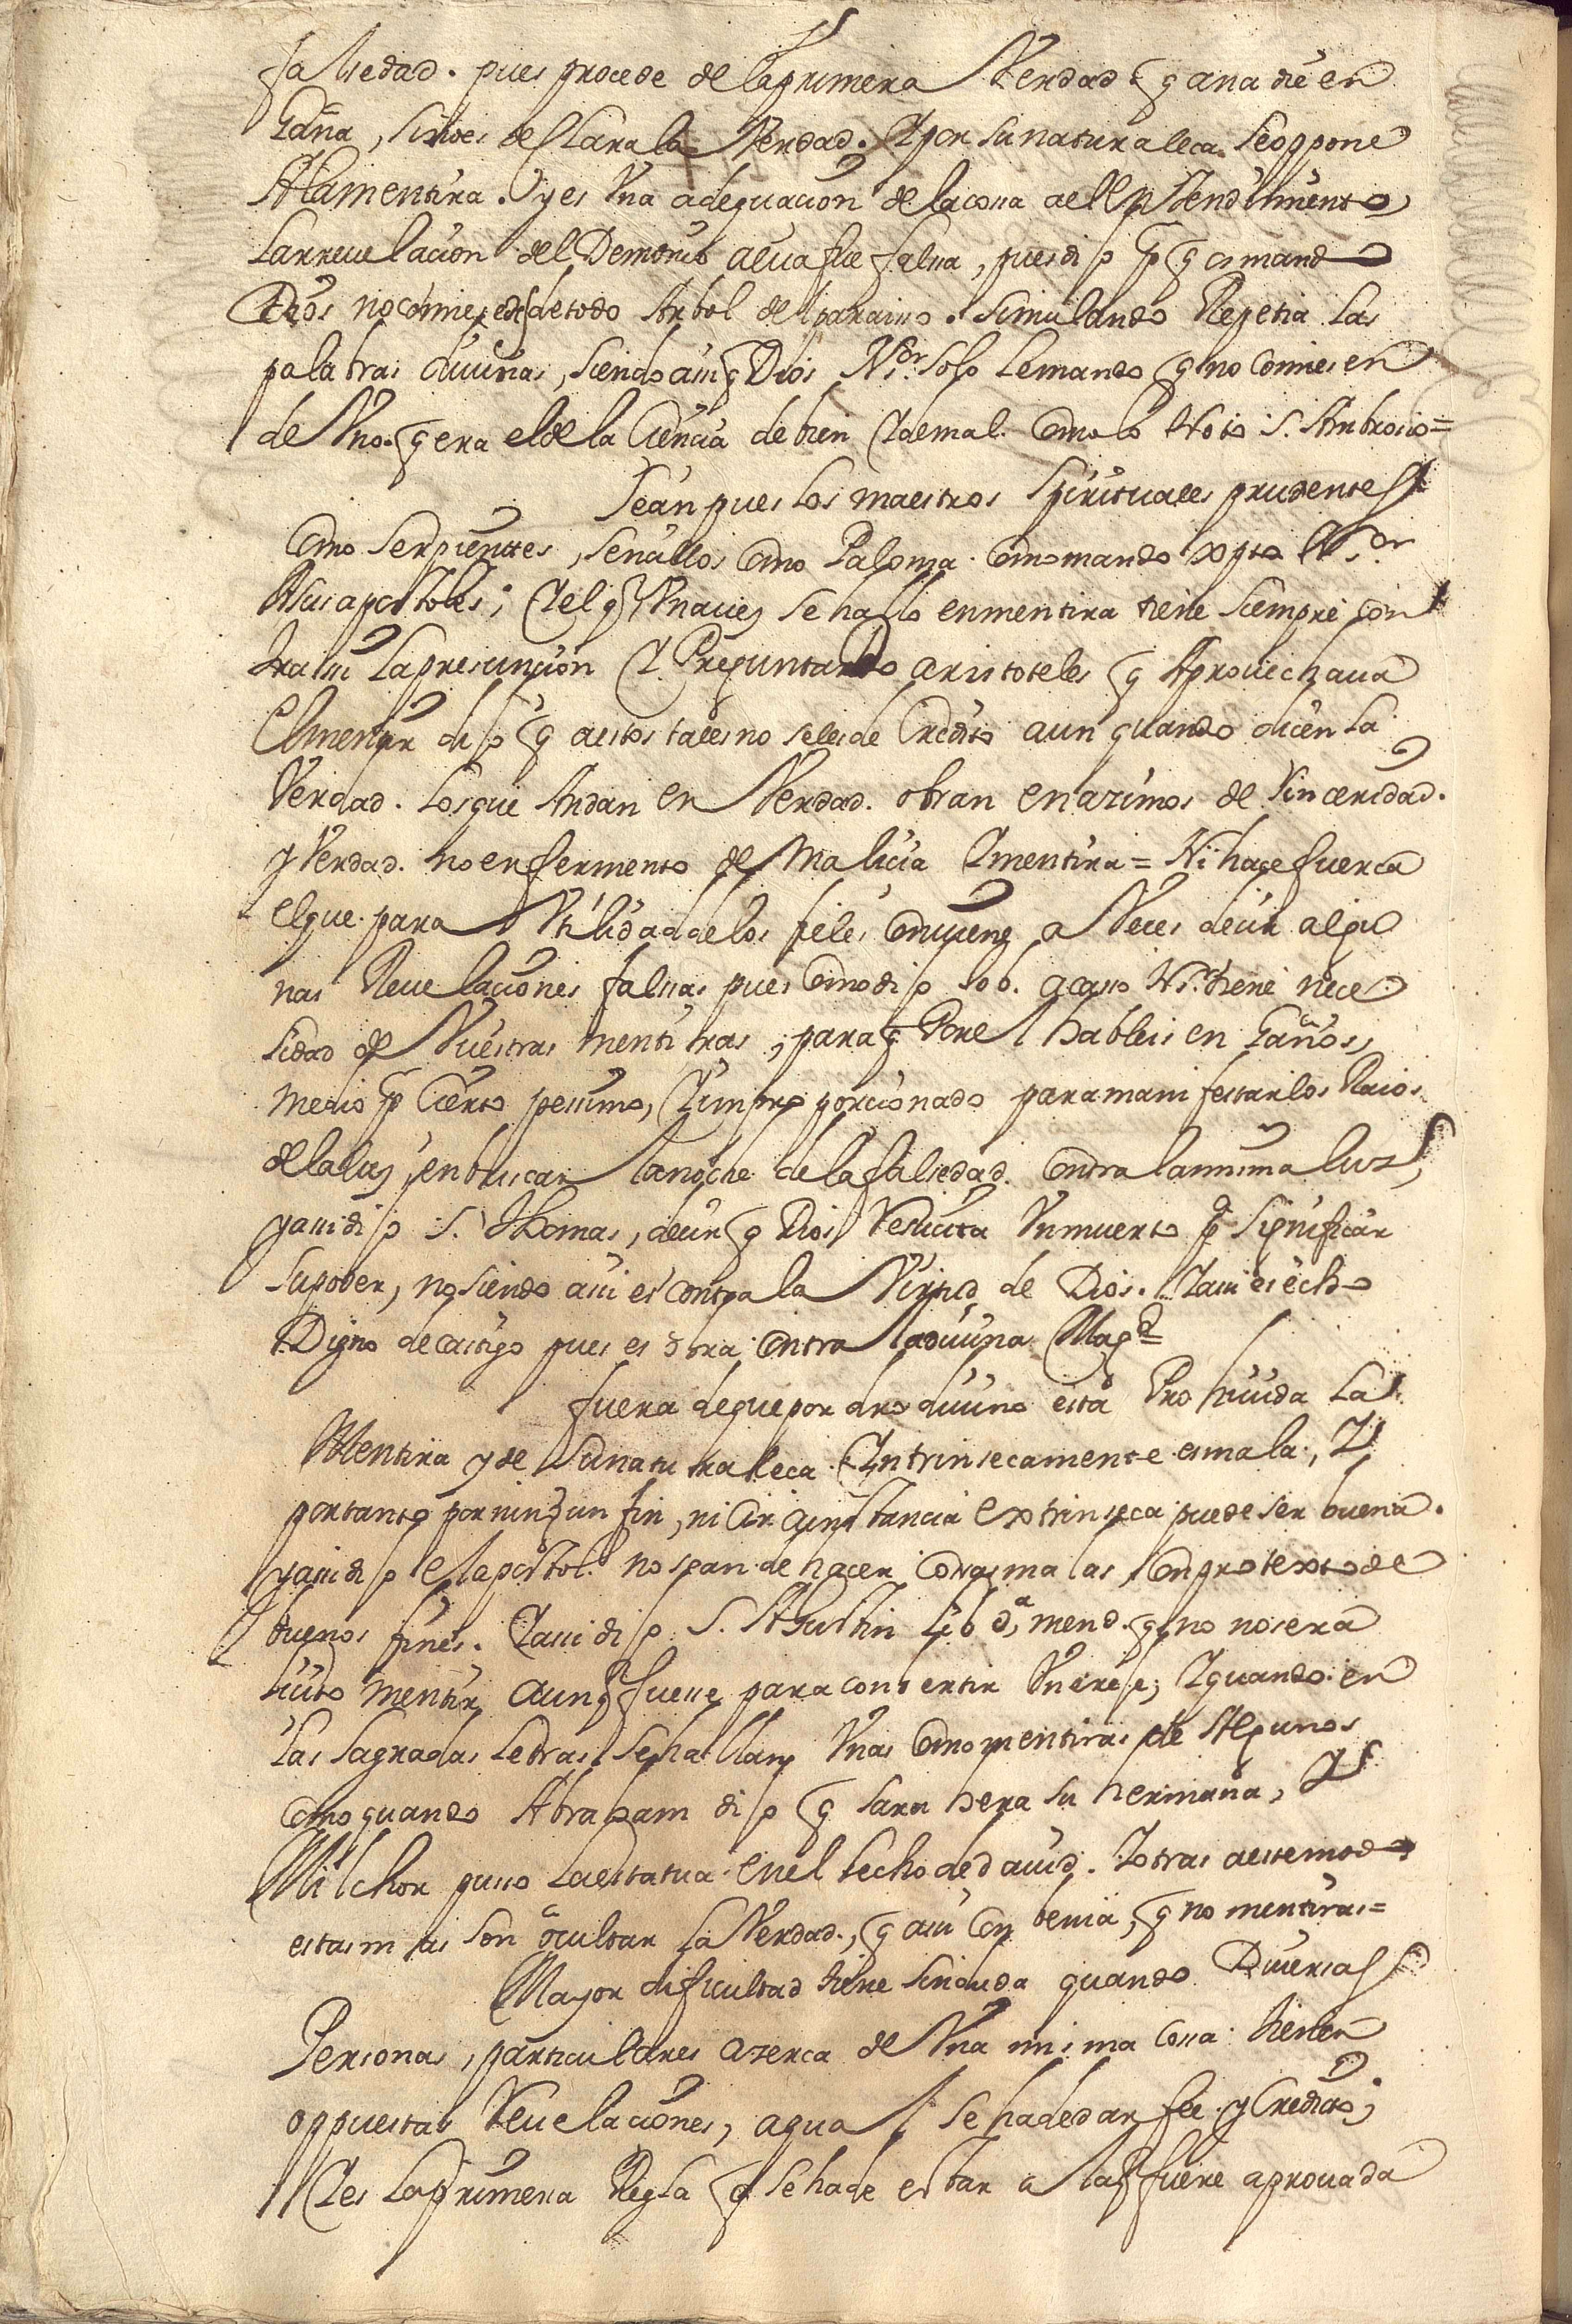 falsedad. pues procede de la primera Verdad q a nadie en
gaña, sino es declara la Verdad. Y por su naturaleca se oppone
A la mentira. y es Vna adequacion de la cossa a el entendimiento
La rreuelacion del Demonio a eua fue falssa, pues dijo q os mando
Dios no comiesedes de todo Arbol del paraisso. simulando Repetia las
palabras diuinas, siendo assi q Dios Nr. Sor solo le mando q no comiesen
de Vno. q era el de la Ciencia de bien Y de mal. Como lo Noto S. Ambrosio=
Sean pues los maestros Spirituales prudentes
Como Serpientes, sencillos Como Paloma. como mando xpto N. Sor
A sus apostoles; Y el q Vna uez se hallo en mentira tiene siempre con
tra si la presuncion Y Preguntando aristoteles q Aprouechaua
El mentir dijo q a estos tales no se les de Credito aun quando dicen la
Verdad. los que Andan en Verdad. obran en azimos de sinceridad.
y Verdad. no en fermento de Malicia Y mentira = Ni hace fuerca
el que para Vtilidad de los fieles Conuiene a Veces decir algu
nas Reuelaciones falssas pues Como dijo Job. acasso Nr. tiene nece
sidad de Vuestras mentiras, para q Por el hableis en gaños,
medio p Cierto pessimo, Y impro porcionado para manifestar los Raios
de la luz, en buscar la noche de la falsedad. Contra la misma luz,
y assi dijo S. Thomas, decir q Dios Resucita Vn muerto p significar
su poder, no siendo assi es contra la Virtud de Dios. Y assi es echo
Digno de castigo pues es obra Contra la diuina Magd
fuera de que por dro diuino esta Prohiuida la
Mentira y de su naturaleca Intrinsecamente es mala, Y
por tanto por ningun fin, ni Circunstancia extrinseca puede ser buena.
y assi dijo el apostol no se an de hacer cossas malas con pretexto de
buenos fines. Y assi dijo S. Agustin Lib da mend. q no nos era
licito mentir aunq fuesse para conbertir Vn ereje; Y quando en
las Sagradas Letras se hallan Vnas Como mentiras de Algunos
como quando Abraham dijo q Sara hera su hermana, Y
Milchor pusso la estatua en el lecho de dauid. Y otras a este modo
estas mas son ocultar la Verdad, q assi Conbenia, q no mentiras=
Mayor dificultad tiene sin duda quando Diuersas
Personas, particulares azerca de Vna misma Cossa tienen
oppuestas Reuelaciones, a qual se ha de dar fee y Credito;
Y es la Primera Regla q se ha de estar a la q fuere aprouada